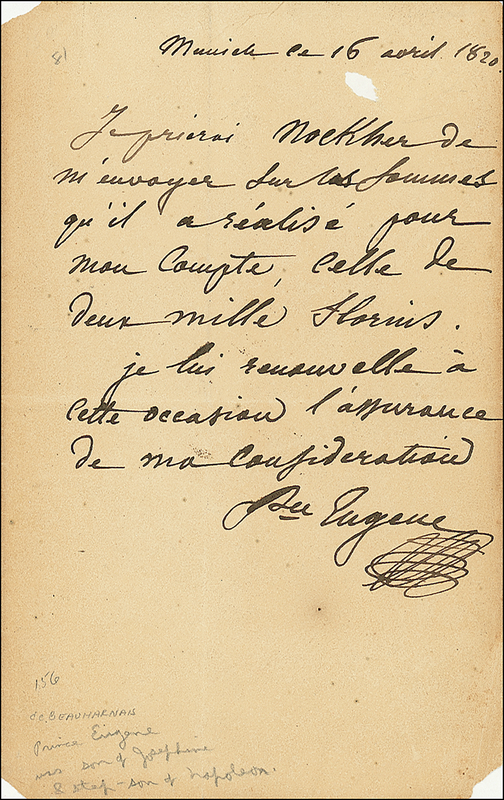 81
Munich ce 16 avril 1820
Je prierai Nockher de
m'envoyer sur les sommes
qu'il a réalisé pour
mon Compte, celle de
deux mille florins.
je lui renouvelle à
cette occasion l'assurance
de ma Consideration
Pce Eugene
156
BEAUHARNAIS
Prince Eugene
was son of Josephine
& step-son of Napoleon.